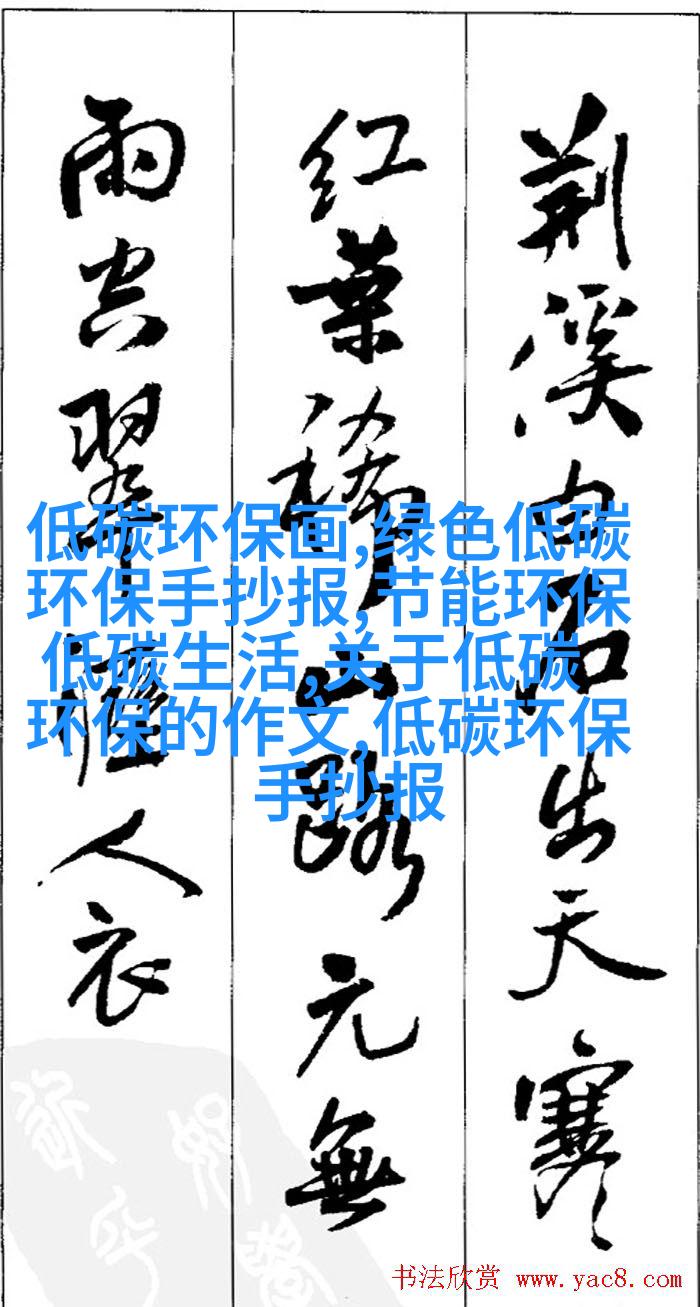 荆溪白石出天寒
红葉稀山路元無
雨空翠濕人衣
低碳环保画,绿色低碳
环保手抄报,节能环保
低碳生活,关于低碳
环保的作文,低碳环保
手抄报
书法欣赏 www.yac8.com